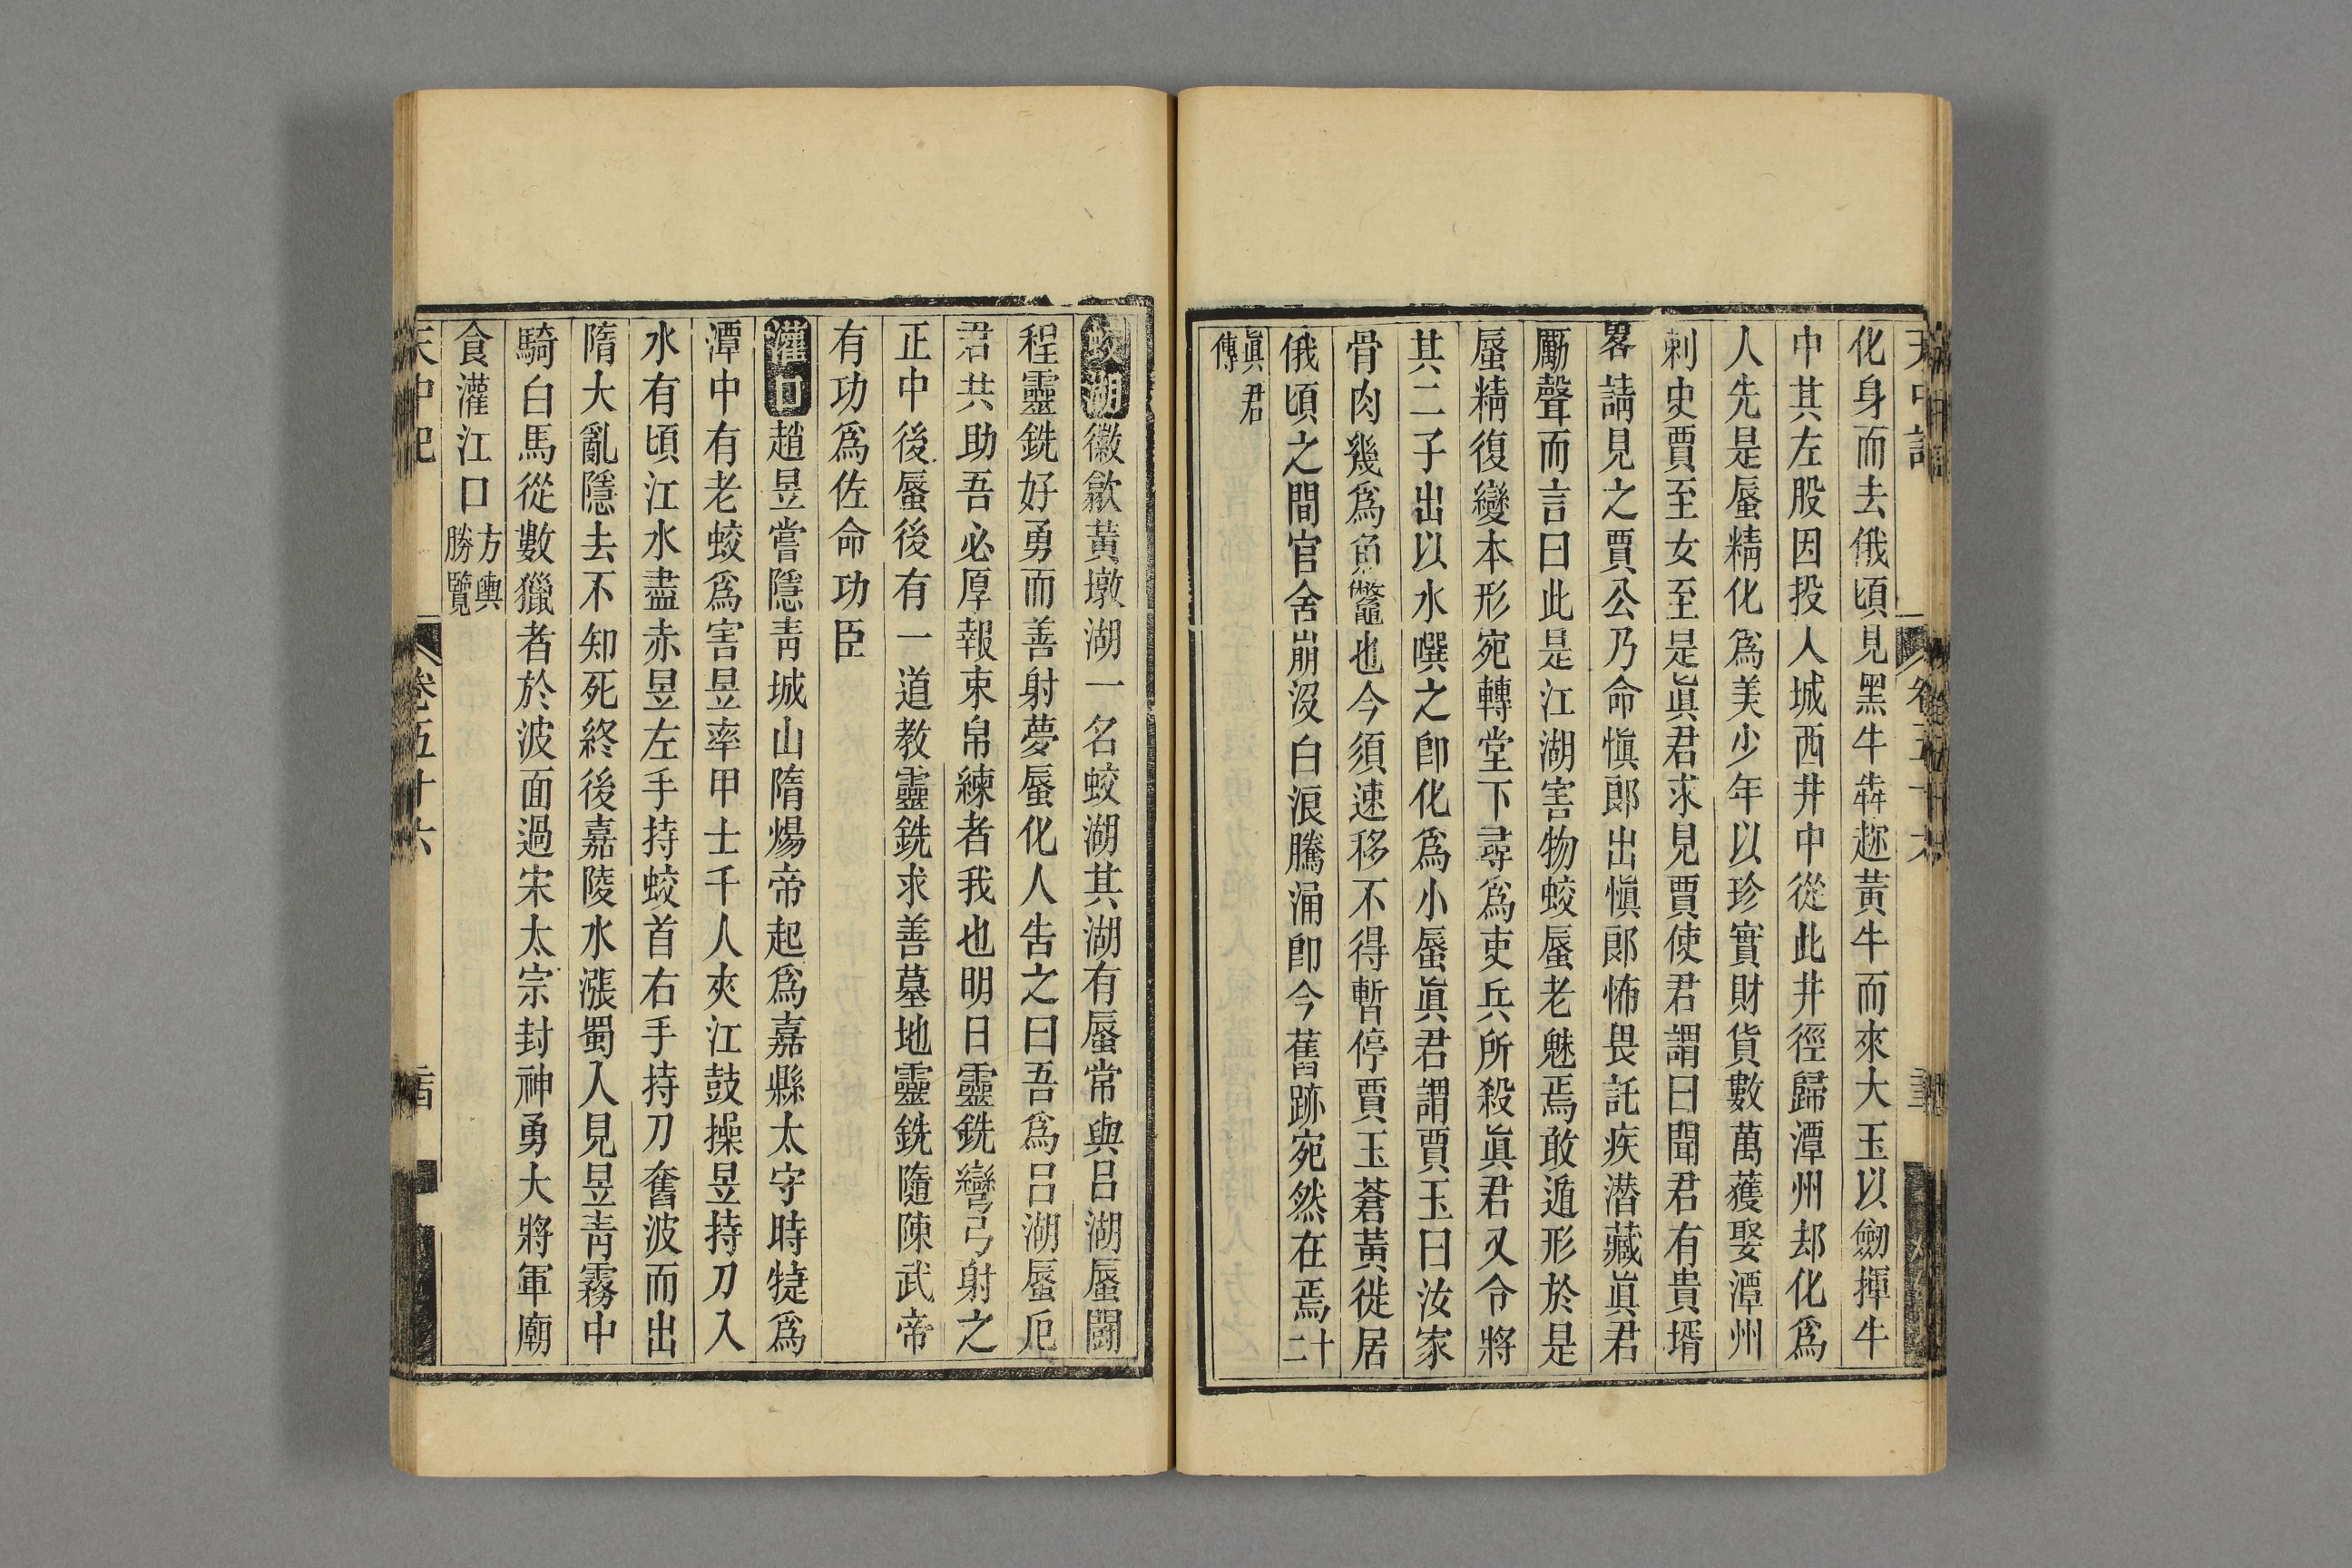 化身而去俄頃見黑牛犇趂黃牛而來大玉以劒揮牛
中其左股因投人城西井中從此井徑歸潭州却化爲
人先是蜃精化爲美少年以珍寳財貨數萬獲娶潭州
刺史賈至女至是眞君求見賈使君謂曰聞君有貴壻
畧請見之賈公乃命愼郎出愼郎怖畏託疾潜藏眞君
勵聲而言曰此是江湖害物蛟蜃老魅焉敢遁形於是
蜃精復變本形宛轉堂下尋爲吏兵所殺眞君又令將
其二子出以水噀之卽化爲小蜃眞君謂賈玉曰汝家
骨肉幾爲魚鼈也今須速移不得暫停賈玉蒼黃徙居
俄頃之間官舍崩沒白浪騰涌卽今舊跡宛然在焉十二
眞君
傳
蛟湖徽歙黃墩湖一名蛟湖其湖有蜃常與呂湖蜃鬪
程靈銑好勇而善射夢蜃化人告之曰吾爲呂湖蜃厄
君共助吾必厚報束帛練者我也明日靈銑彎弓射之
正中後蜃後有一道教靈銑求善墓地靈銑隨陳武帝
有功爲佐命功臣
灌口趙昱嘗隱靑城山隋煬帝起爲嘉縣太守時犍爲
潭中有老蛟爲害昱率甲士千人夾江鼓操昱持刀入
水有頃江水盡赤昱左手持蛟首右手持刀奮波而出
隋大亂隱去不知死終後嘉陵水漲蜀人見昱靑霧中
騎白馬從數獵者於波面過宋太宗封神勇大將軍廟
食灌江口方輿
勝覽
天中記
卷五十六